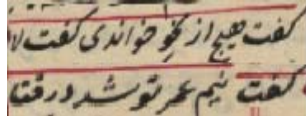 گفت هیچ از نحو خواندی گفت لا
گفت نیم عمر تو شد در فنا